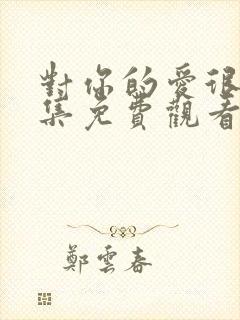 對你的愛很
集免費觀看
鄭雲春